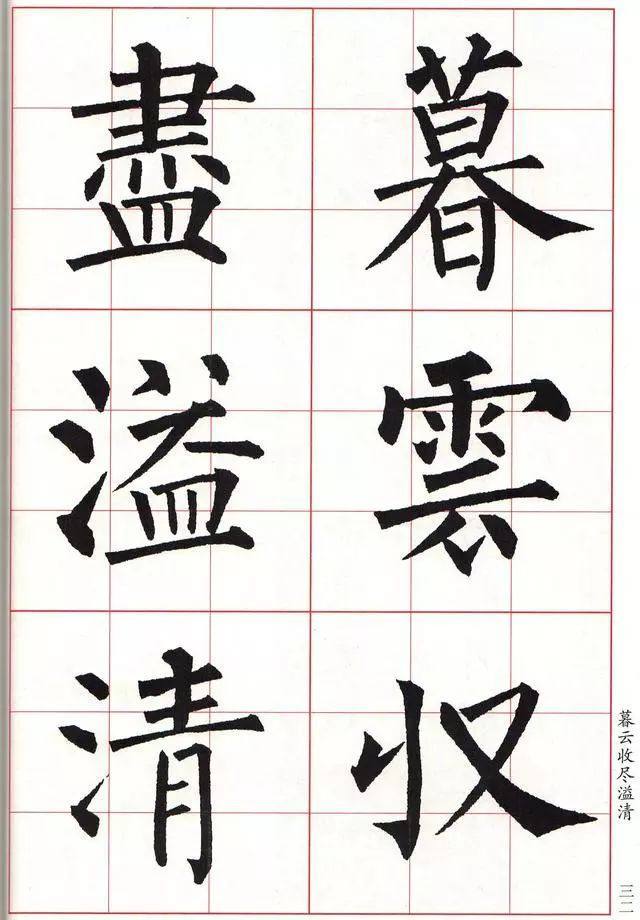 暮雲収
盡溢清
暮云收尽溢清
三二